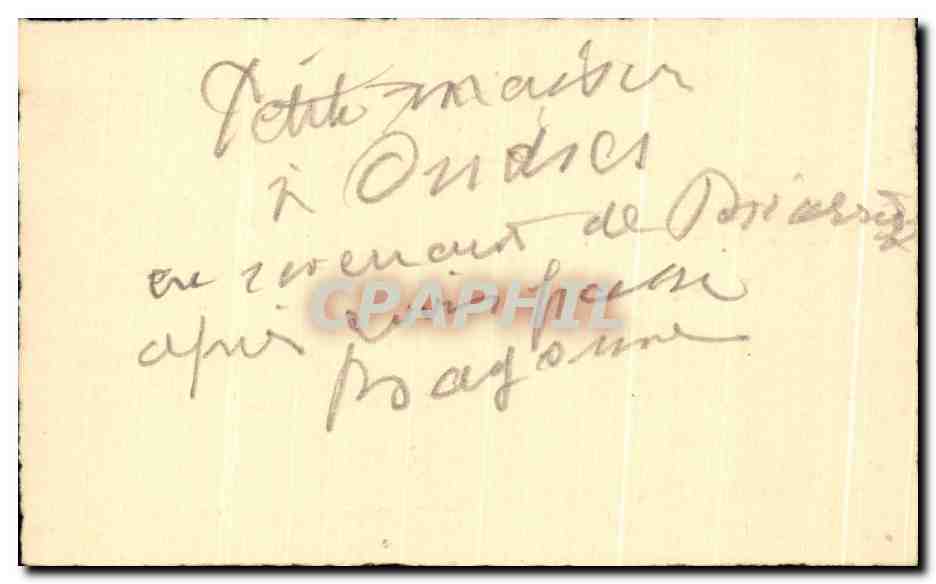 Petite maison
à Ondres
en revenant de Biarritz
après avoir passé
Bayonne
CPAPHIL